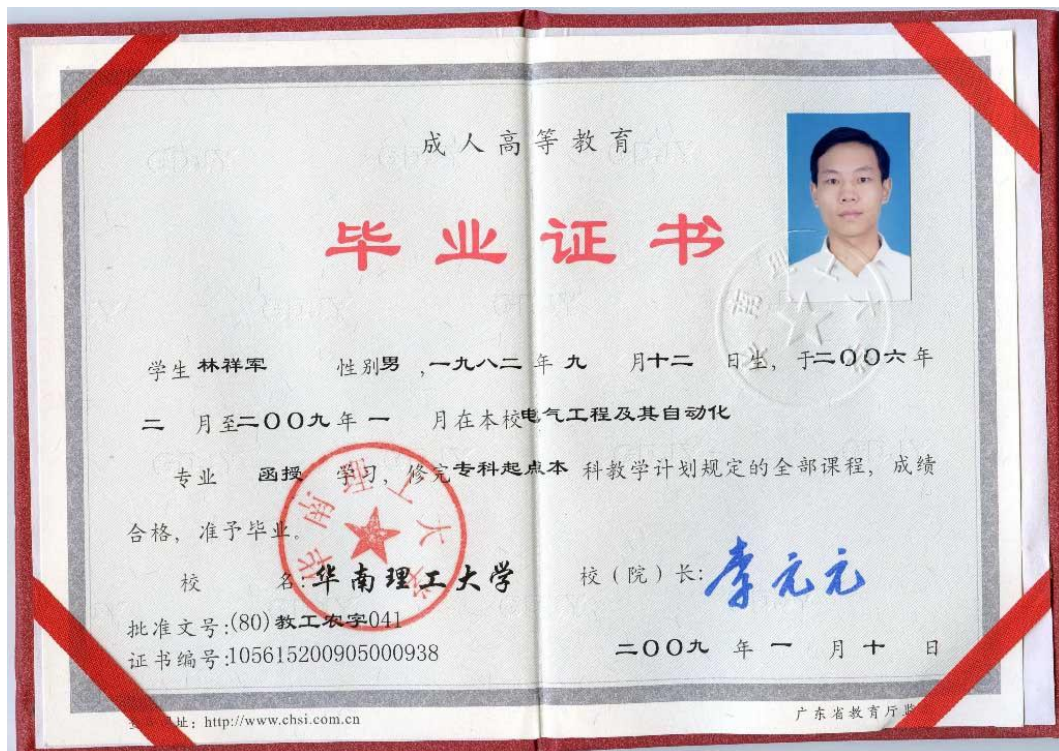 成人高等教育
毕业证书
学生 林祥军 性别 男 ,一九八二 年 九 月 十二 日生, 于二OO六 年
二 月至二OO九 年 一 月在本校电气工程及其自动化
专业 函授 学习, 修完 专科起点本 科教学计划规定的全部课程, 成绩
合格, 准予毕业。
校 名:华南理工大学
校(院)长:李元元
批准文号:(80)教工农字041
证书编号:105615200905000938
二OO九 年 一 月 十 日
华南理工大学
华南理工大学
址: http://www.chsi.com.cn
广东省教育厅